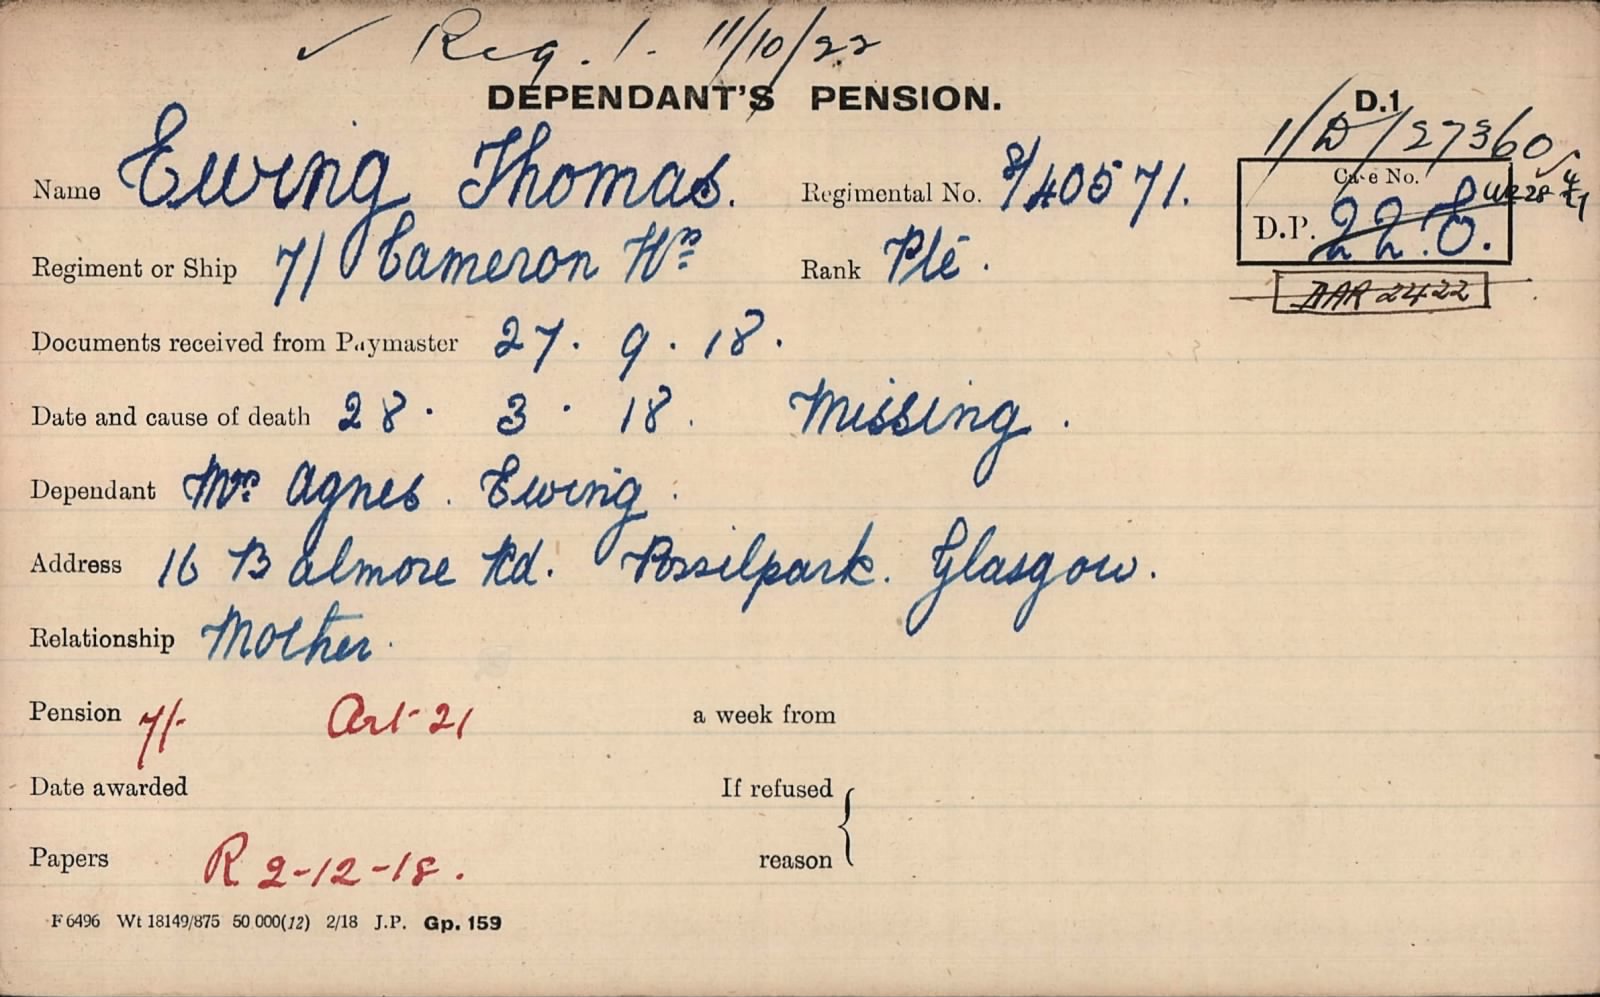 ✓ Reg. 1. 11/10/22
DEPENDANT'S PENSION.
D.1
1/D/27360
Name Ewing Thomas. Regimental No. S/40571.
Case No.
D.P. 228.
Regiment or Ship 7/ Cameron Hrs Rank Pte.
MAR 2422
Documents received from Paymaster 27. 9. 18.
Date and cause of death 28. 3. 18. Missing.
Dependant Mrs Agnes. Ewing.
Address 16 Balmore Rd. Possilpark. Glasgow.
Relationship Mother.
Pension 7/- Art 21 a week from
Date awarded If refused
Papers R 2-12-18. reason
F 6496 Wt 18149/875 50,000(12) 2/18 J.P. Gp. 159